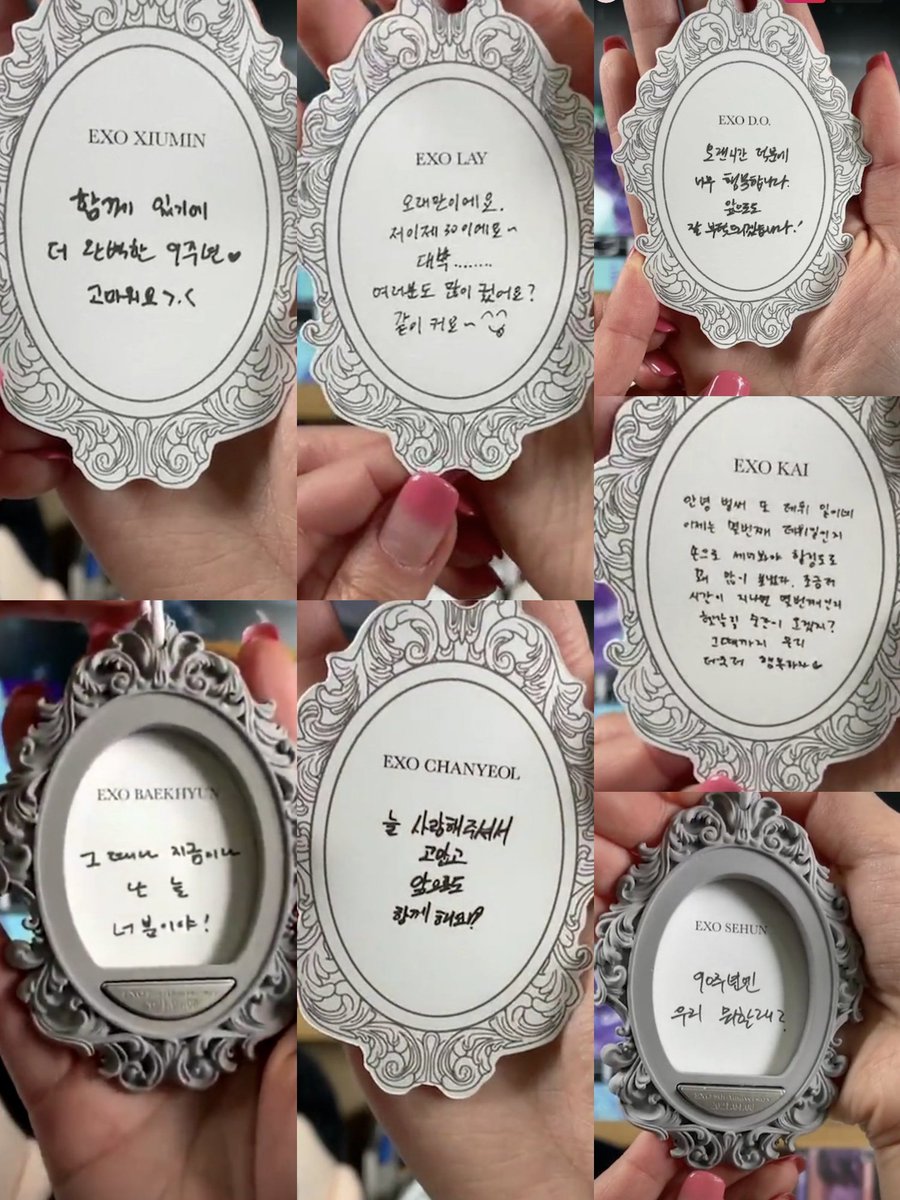 EXO XIUMIN
함께 있기에
더 완벽한 9주년♥
고마워요>.<
EXO LAY
오래만이에요.
저이제 30이에요~
대박........
여러분도 많이 컸어요?
같이 커요~^^
EXO D.O.
오랜시간 덕분에
너무 행복합니다.
앞으로도
잘 부탁드리겠습니다!
EXO KAI
안녕 벌써 또 데뷔 일이네
이제는 몇번째 데뷔일인지
손으로 세어봐야 할정도로
꽤 많이 보냈다. 조금더
시간이 지나면 몇번째인지
헷갈릴 순간이 오겠지?
그때까지 우리
더욱더 행복하자♡
EXO BAEKHYUN
그 때나 지금이나
난 늘
너 뿐이야!
EXO CHANYEOL
늘 사랑해주셔서
고맙고
앞으로도
함께 해요!?
EXO SEHUN
90주년엔
우리 뭐할래?
EXO 9th Anniversary
2021.04.08